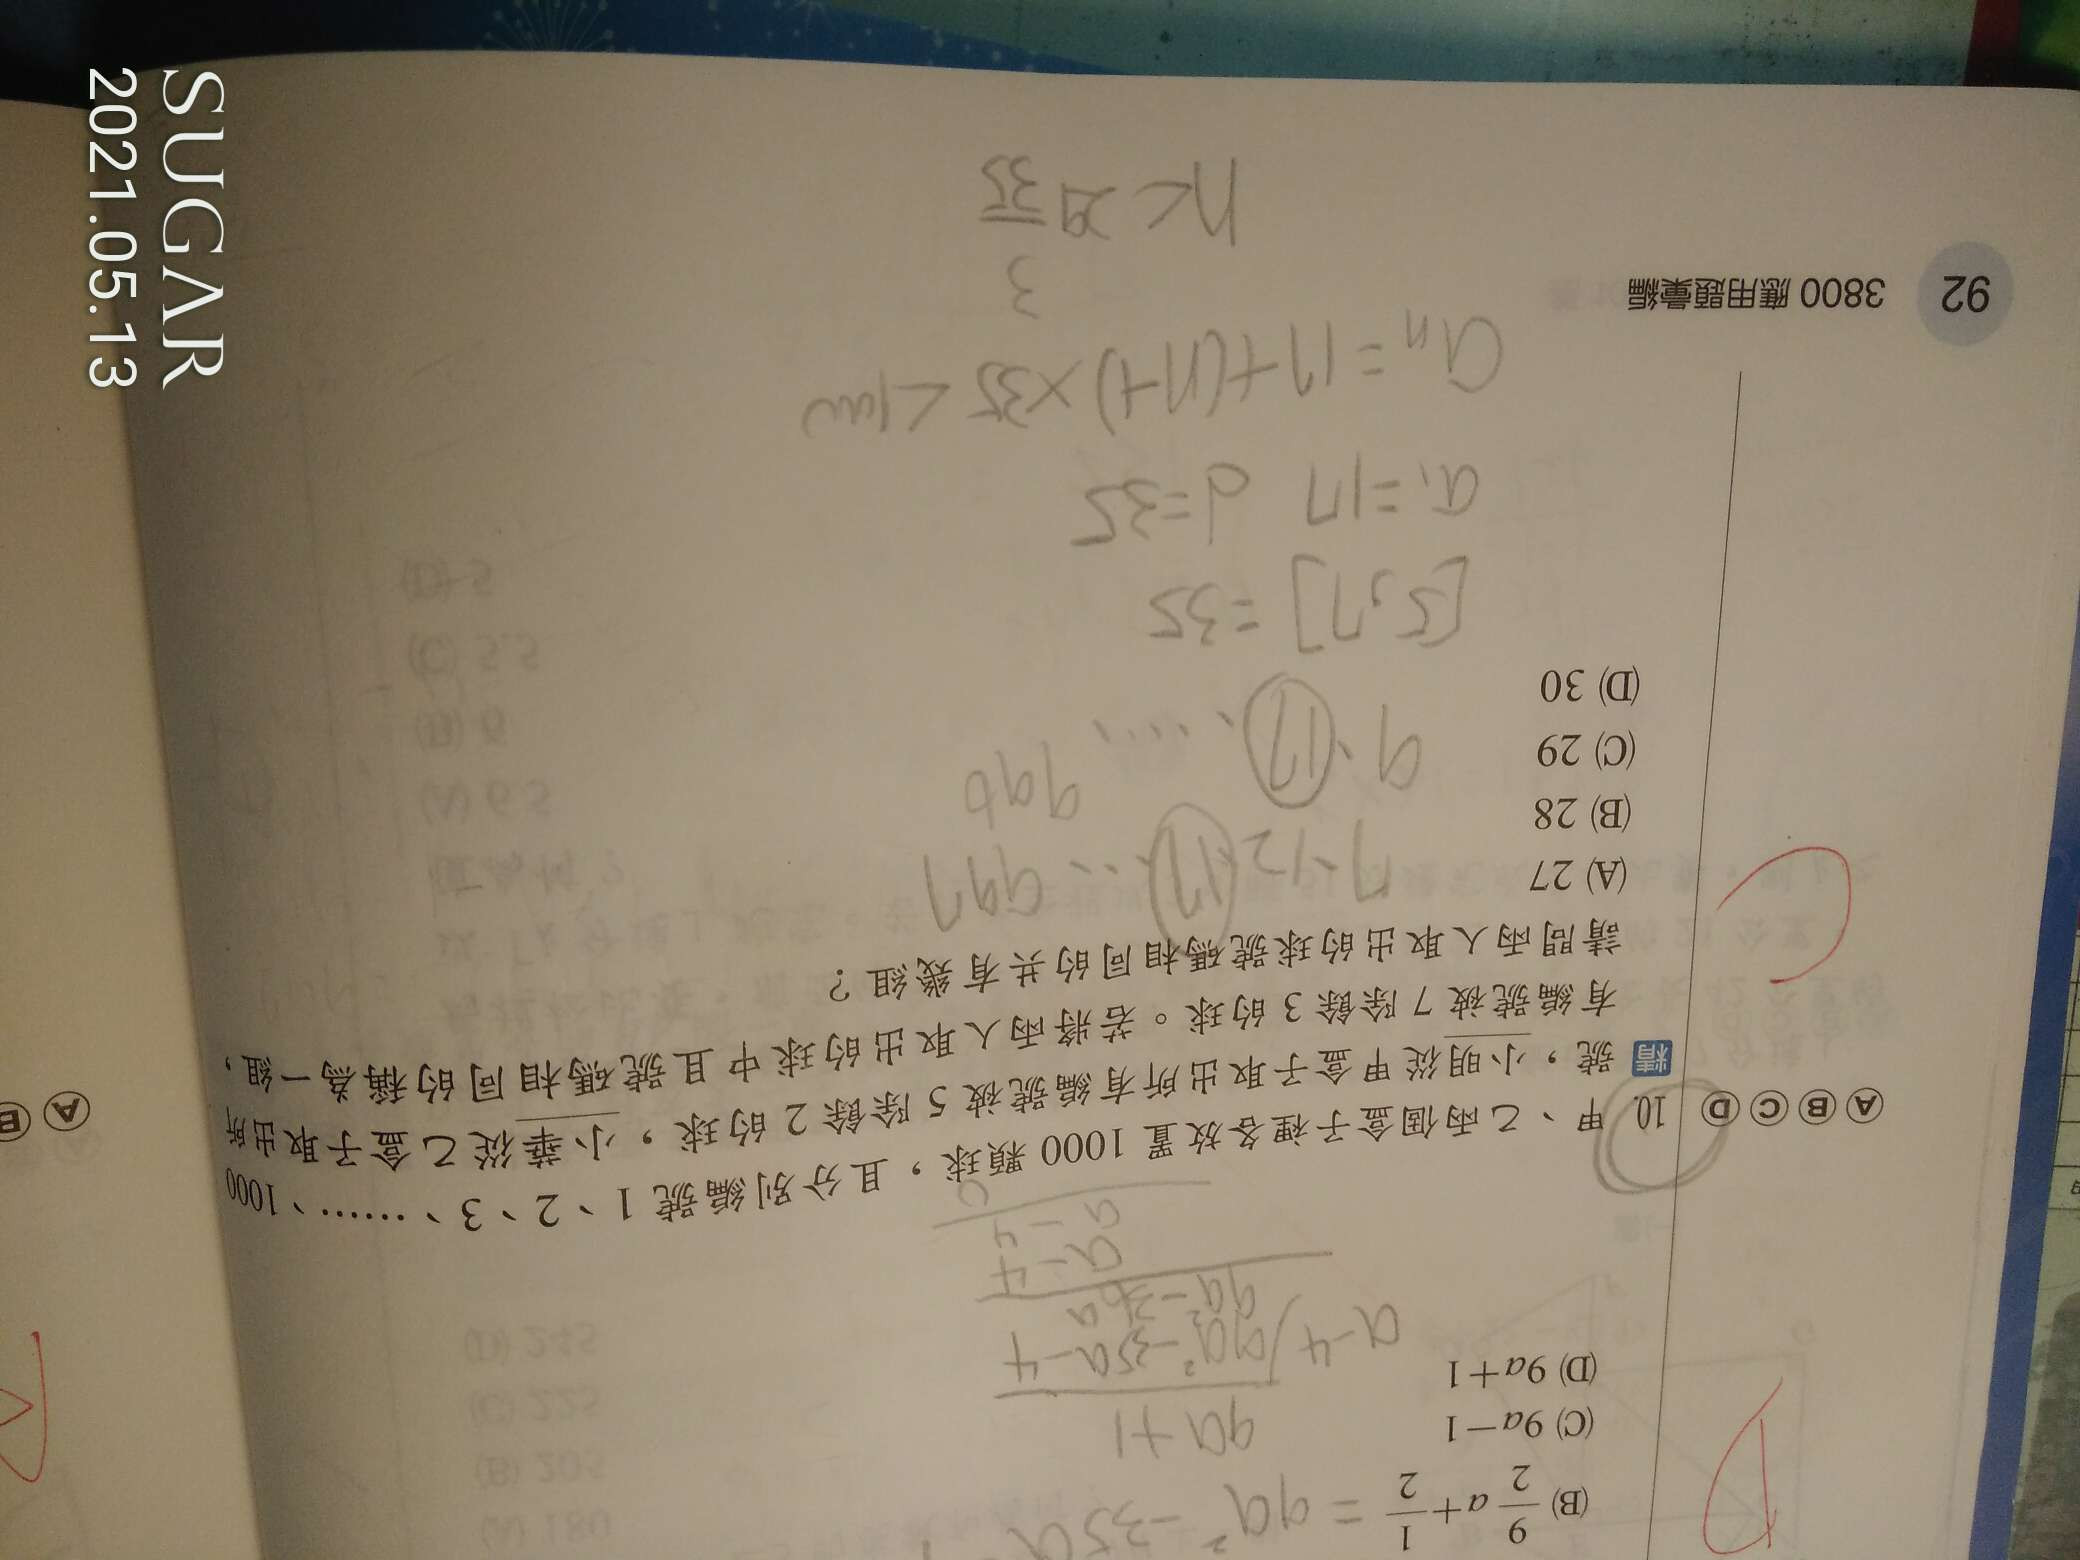 (B) 9/2 a+1/2 = 9a²-35a
(C) 9a-1
9a+1
(D) 9a+1
a-4 9a²-35a-4
9a²-36a
a-4
a-4
0
ⒶⒷⒸⒹ 10. 甲、乙兩個盒子裡各放置 1000 顆球,且分別編號 1、2、3、……、1000
精 號,小明從甲盒子取出所有編號被 5 除餘 2 的球,小華從乙盒子取出所
有編號被 7 除餘 3 的球。若將兩人取出的球中且號碼相同的稱為一組,
請問兩人取出的球號碼相同的共有幾組?
(A) 27
7、12、17、… 997
(B) 28
(C) 29
(D) 30
[5,7]=35
a₁=17 d=35
aₙ=17+(n-1)×35<1000
92 3800 應用題彙編
3
n<29 35
Ⓐ Ⓑ
SUGAR
2021.05.13